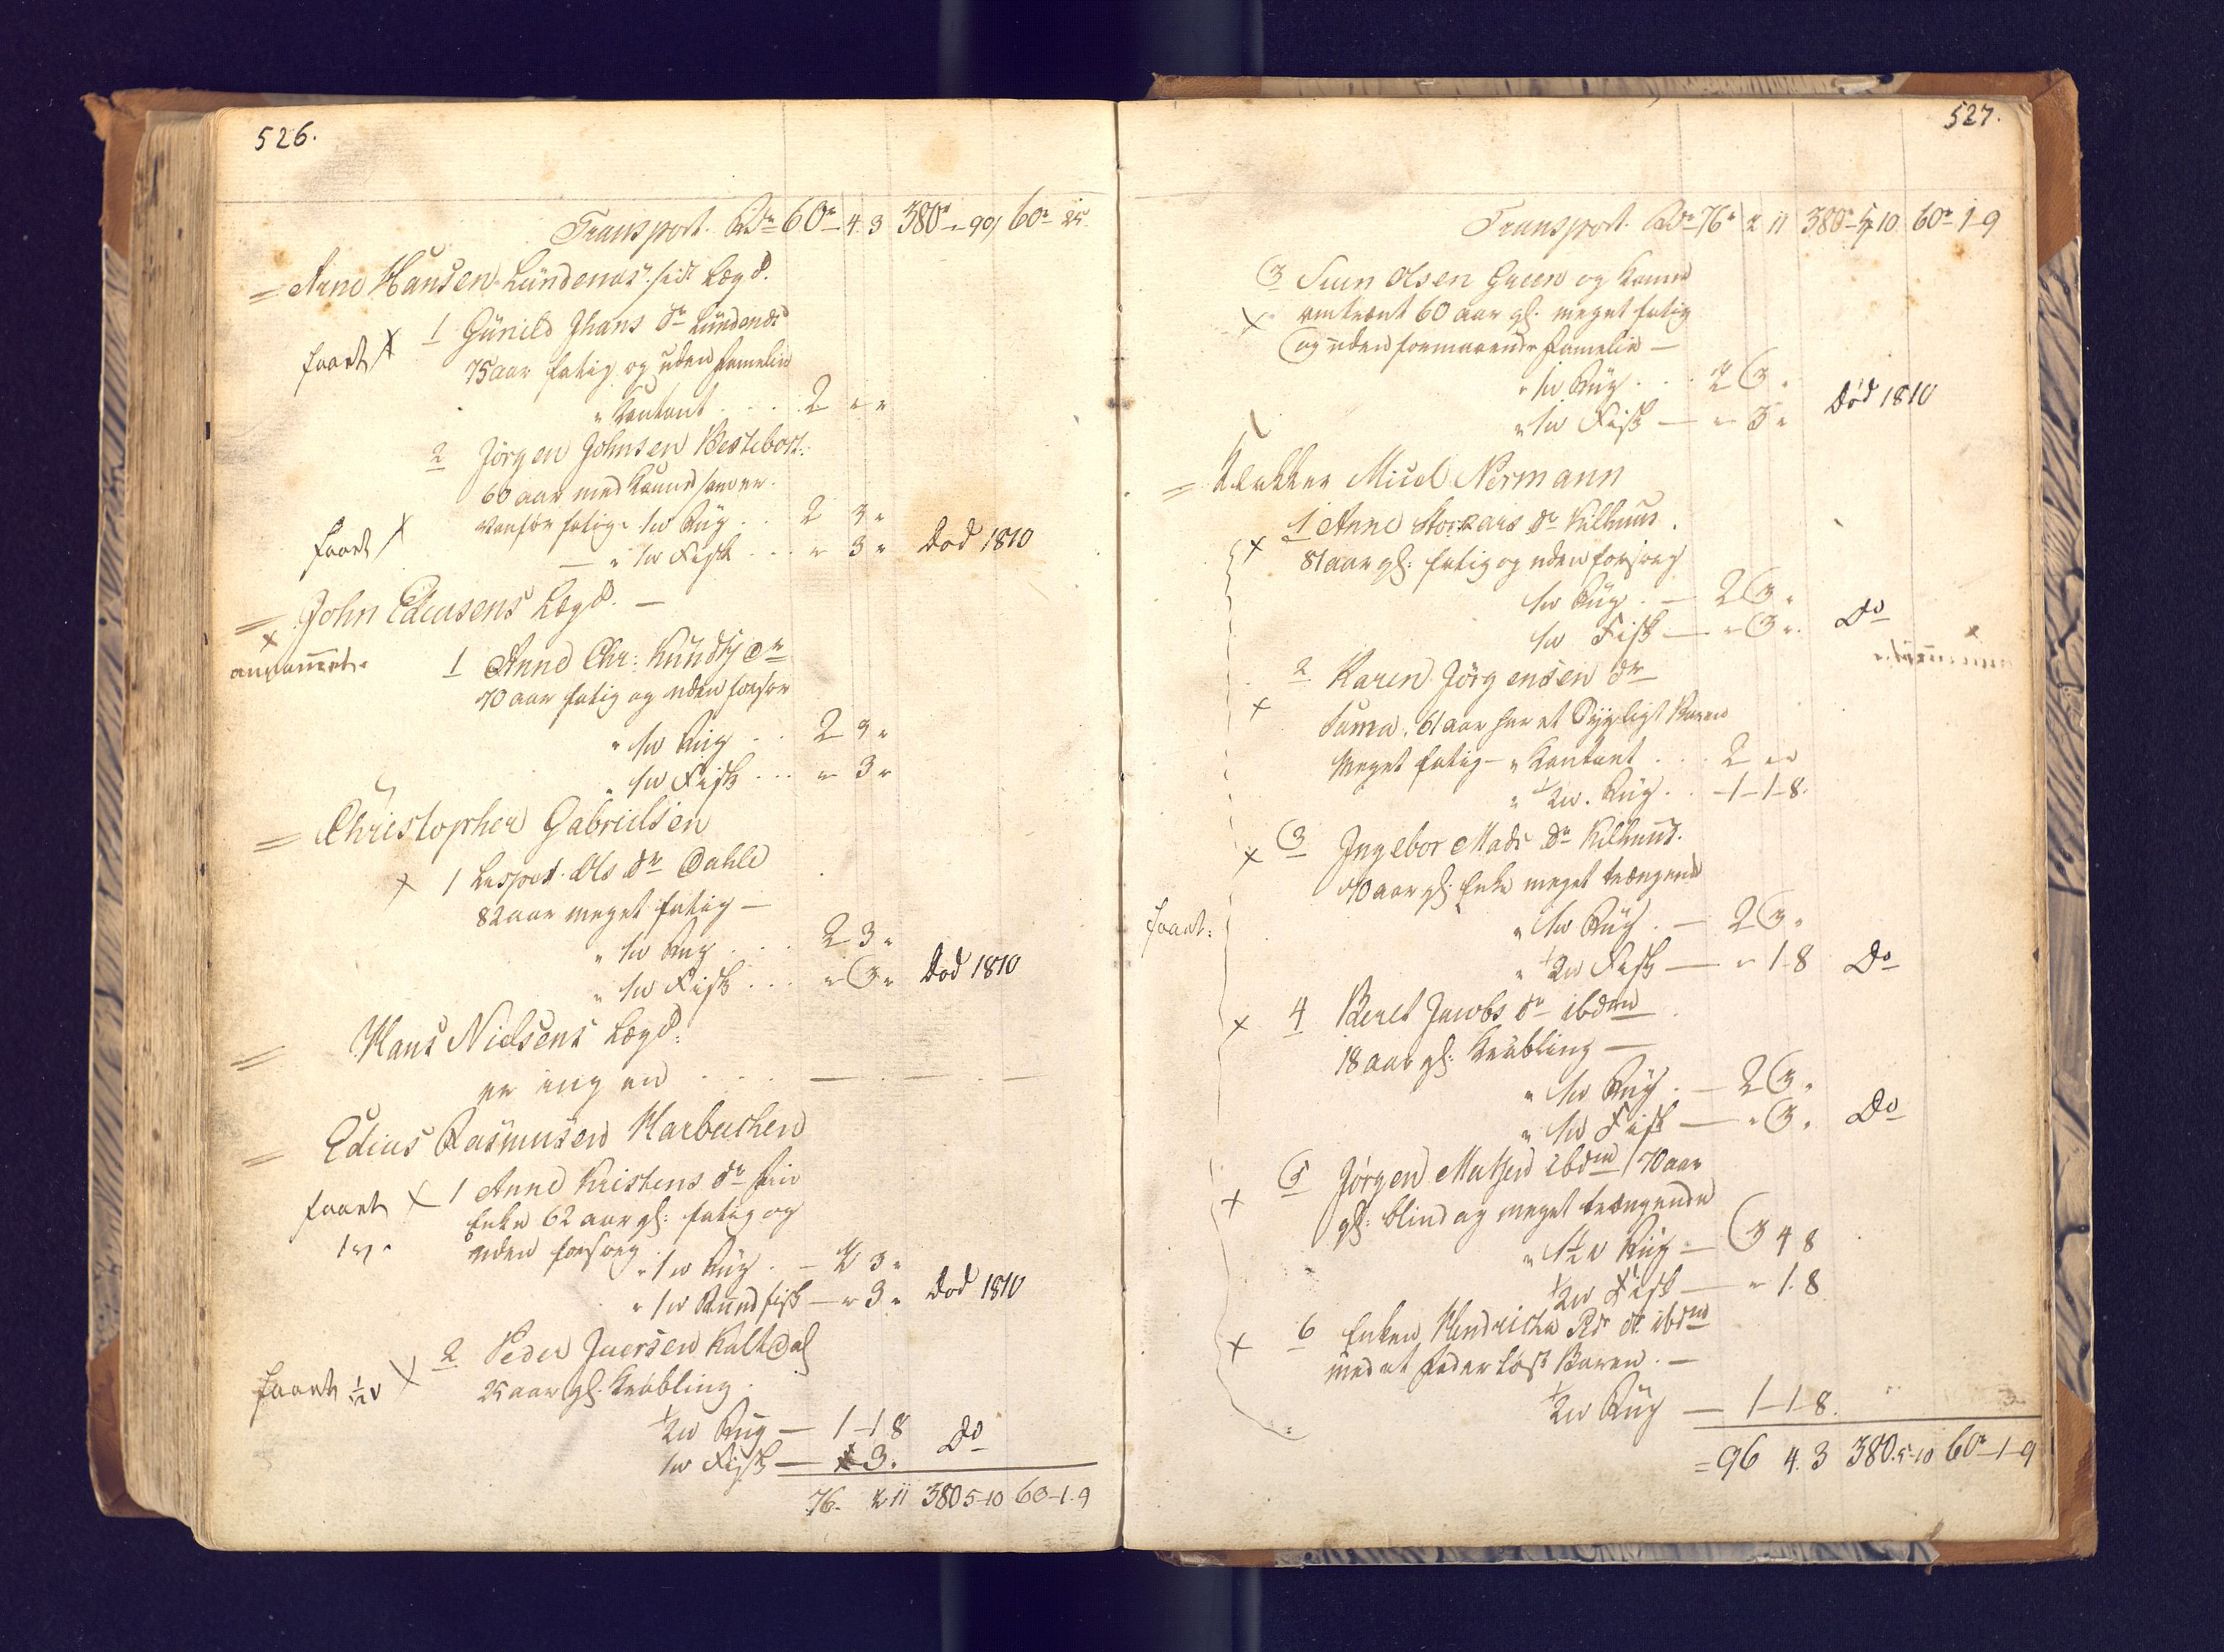 526.
Transport. Rdr 60 " 4. 3 380 " 90/ 60 "
= Arne Hansen Lündenæs: sidt Lægd.
faaet X 1 Günild Jhans Dr Lündenæs
75 aar fatig og uden familie
" Contant . . . 2 " "
2 Jörgen Johnsen Bestebost:
60 aar med Kone som er
faaet X vanfør fatig " 1 w Rüg . . 2 3 "
— " 1 w Fisk . . . " 3 " Død 1810
= John Edeusens Lægd. —
X
annammet. 1 Anne Chr: Knüds Dr
70 aar fatig og uden forsor
" 1 w Rüg . . 2 3 "
" 1 w Fisk . . . " 3 "
= Christopher Gabrielsen
X 1 Lispet Ols Dr Dahle
82 aar meget fatig —
" 1 w Rug . . . 2 3 "
" 1 w Fisk . . . " 3 " Død 1810
= Hans Nielsens Lægd:
er ingen . . . — . — . —
= Edeus Rasmusen Harbachen
faaet X 1 Anne Kristens Dr
1 v. Enke 62 aar gl: fatig og
uden forsorg
" 1 w Rüg . — 2 3 "
" 1 w Rundfisk — " 3 " Død 1810
faaet ½ v X 2 Peder Juersen Kaltdal
25 aar gl. Kröbling .
½ w Rüg — 1 - 1 8
1 w Fisk — 3. Do
76. 2 11 380 5-10 60-1.9
527.
Transport. Rdr 76 " 2 11 380 - 5 10 60 " 1-9
3 Siun Olsen Green og Kone
X omtrent 60 aar gl. meget fatig
og uden formaaende familie —
" 1 w Rüg . . . 2 3 "
" 1 w Fisk — " 3 " Død 1810
= Klokker Micel Normann
X 1 Anne Anders Dr Kilhuus.
81 aar gl: fatig og uden forsorg
1 w Rüg . — 2 3 "
1 w Fisk — " 3 ". Do
2 Karen Jörgensen Dr
X Sama. 61 aar har et Sygeligt Baren
Meget fatig — " Contant . . . 2 " "
" ½ w. Rüg . . - 1 - 1 - 8.
X 3 Ingebor Mads Dr Kilhuus.
70 aar gl: Enke meget trængende
faaet: " 1 w Rüg . — 2 3 "
" ½ w Fisk — " 1-8 Do
X 4 Beret Jacobs Dr ibdem
18 aar gl: Kröbling —
" 1 w Rüg . — 2 3 "
" 1 w Fisk — " 3 " Do
X 5 Jörgen Matsen ibdem 70 aar
gl: blind og meget trængende
" 1½ v Rüg — 3 4 8
½ w Fisk — " 1.8
X 6 Enken Hendricha Pedr Dr ibdem
med et faderløst Baren. —
½ w Rüg — 1 - 1 - 8.
= 96 4. 3 380.5-10 60 "-1-9